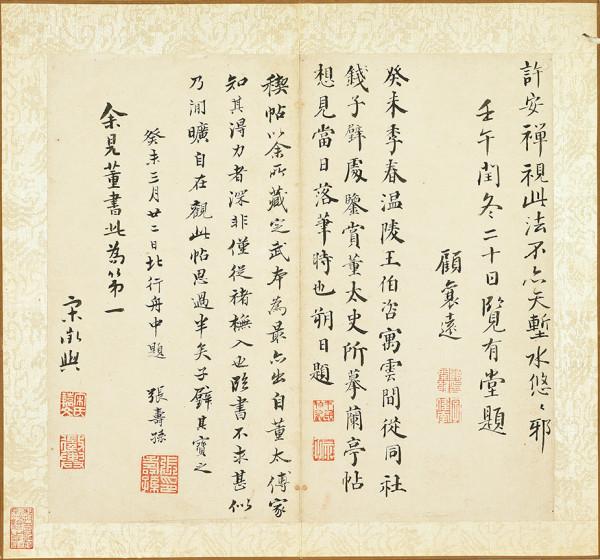 許安禪視此法不亦天塹水悠悠邪
壬午閏冬二十日覽有堂題
顧襄遠
癸未季春温陵王伯咨寓雲間從同社
錢子壁處鑒賞董太史所摹蘭亭帖
想見當日落筆時也朔日題
稧帖以余所藏定武本為最亦出自董太傅家
知其得力者深非僅從褚橅入也臨書不求甚似
乃淵曠自在觀此帖思過半矣子壁其寶之
癸未三月廿二日北行舟中題 張壽孫
余見董書此為第一
宋徵輿